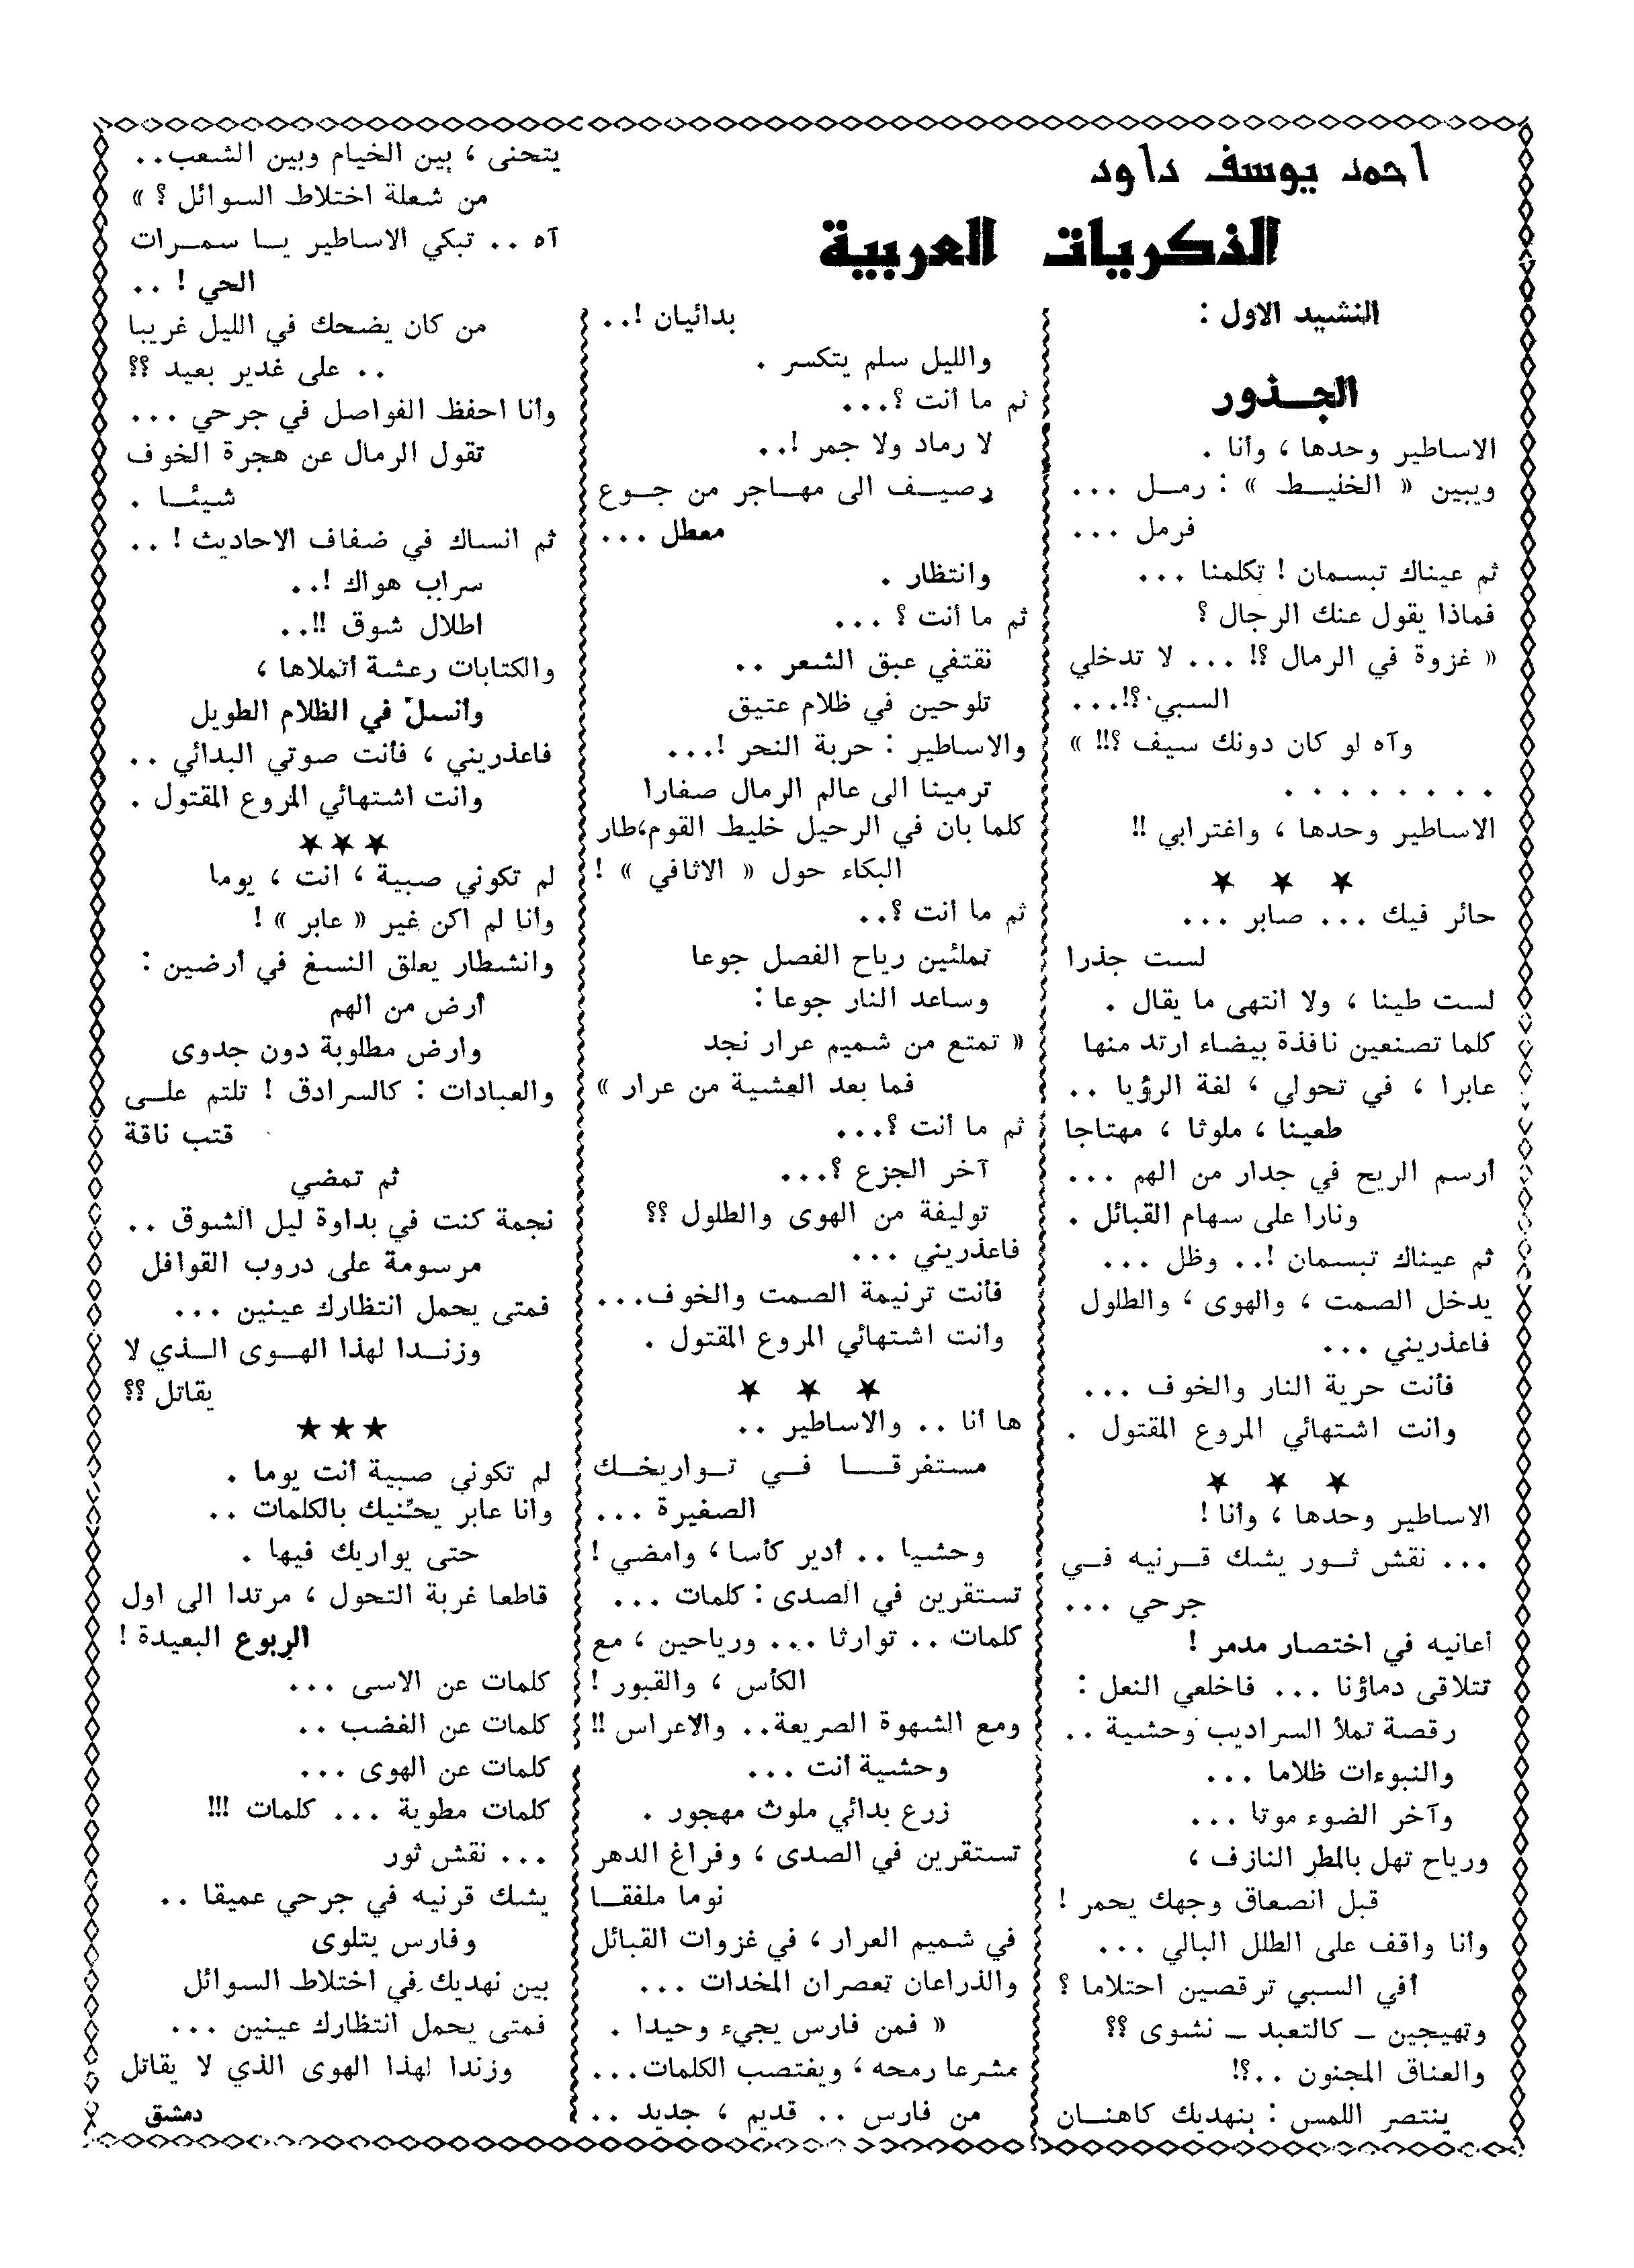 احمد يوسف داود
الذكريات العربية
النشيد الاول :
الجــذور
الاساطير وحدها ، وأنا .
ويبين « الخليـط » : رمـل ...
فرمل ...
ثم عيناك تبسمان ! تكلمنا ...
فماذا يقول عنك الرجال ؟
« غزوة في الرمال ؟! ... لا تدخلي
السبي ؟!...
وآه لو كان دونك سيف ؟!! »
. . . . . . . .
الاساطير وحدها ، واغترابي !!
★ ★ ★
حائر فيك ... صابر ...
لست جذرا
لست طينا ، ولا انتهى ما يقال .
كلما تصنعين نافذة بيضاء ارتد منها
عابرا ، في تحولي ، لغة الرؤيا ..
طعينا ، ملوثا ، مهتاجا
أرسم الريح في جدار من الهم ...
ونارا على سهام القبائل .
ثم عيناك تبسمان !.. وظل ...
يدخل الصمت ، والهوى ، والطلول
فاعذريني ...
فأنت حربة النار والخوف ...
وانت اشتهائي المروع المقتول .
★ ★ ★
الاساطير وحدها ، وأنا !
... نقش ثـور يشك قـرنيه فـي
جرحي ...
أعانيه في اختصار مدمر !
تتلاقى دماؤنا ... فاخلعي النعل :
رقصة تملأ السراديب وحشية ..
والنبوءات ظلاما ...
وآخر الضوء موتا ...
ورياح تهل بالمطر النازف ،
قبل انصعاق وجهك يحمر !
وأنا واقف على الطلل البالي ...
أفي السبي ترقصين احتلاما ؟
وتهيجين ــ كالتعبد ــ نشوى ؟؟
والعناق المجنون ..؟!
ينتصر اللمس : بنهديك كاهنـان
بدائيان !..
والليل سلم يتكسر .
ثم ما أنت ؟...
لا رماد ولا جمر !..
رصيـف الى مهـاجر من جـوع
معطل ...
وانتظار .
ثم ما أنت ؟ ...
نقتفي عبق الشعر ..
تلوحين في ظلام عتيق
والاساطير : حربة النحر !...
ترمينا الى عالم الرمال صغارا
كلما بان في الرحيل خليط القوم،طار
البكاء حول « الاثافي » !
ثم ما أنت ؟..
تملئين رياح الفصل جوعا
وساعد النار جوعا :
« تمتع من شميم عرار نجد
فما بعد العشية من عرار »
ثم ما أنت ؟...
آخر الجزع ؟...
توليفة من الهوى والطلول ؟؟
فاعذريني ...
فأنت ترنيمة الصمت والخوف...
وأنت اشتهائي المروع المقتول .
★ ★ ★
ها أنا .. والاساطير ..
مستغرقـــا فـي تـواريخـك
الصغيرة ...
وحشيا .. أدير كأسا ، وامضي !
تستقرين في الصدى : كلمات ...
كلمات .. توارثا ... ورياحين ، مع
الكأس ، والقبور !
ومع الشهوة الصريعة.. والاعراس !!
وحشية أنت ...
زرع بدائي ملوث مهجور .
تستقرين في الصدى ، وفراغ الدهر
نوما ملفقـا
في شميم العرار ، في غزوات القبائل
والذراعان تعصران المخدات ...
« فمن فارس يجيء وحيدا .
مشرعا رمحه ، ويغتصب الكلمات...
من فارس .. قديم ، جديد ..
يتحنى ، بين الخيام وبين الشعب..
من شعلة اختلاط السوائل ؟ »
آه .. تبكي الاساطير يــا سمـرات
الحي ! ..
من كان يضحك في الليل غريبا
.. على غدير بعيد ؟؟
وأنا احفظ الفواصل في جرحي ...
تقول الرمال عن هجرة الخوف
شيئـا .
ثم انساك في ضفاف الاحاديث ! ..
سراب هواك !..
اطلال شوق !!..
والكتابات رعشة أتملاها ،
وأنسلّ في الظلام الطويل
فاعذريني ، فأنت صوتي البدائي ..
وانت اشتهائي المروع المقتول .
★★★
لم تكوني صبية ، انت ، يوما
وأنا لم اكن غير « عابر » !
وانشطار يعلق النسغ في أرضين :
أرض من الهم
وارض مطلوبة دون جدوى
والعبادات : كالسرادق ! تلتم علـى
قتب ناقة
ثم تمضي
نجمة كنت في بداوة ليل الشوق ..
مرسومة على دروب القوافل
فمتى يحمل انتظارك عينين ...
وزنـدا لهذا الهـوى الـذي لا
يقاتل ؟؟
★★★
لم تكوني صبية أنت يوما .
وأنا عابر يحنّيك بالكلمات ..
حتى يواريك فيها .
قاطعا غربة التحول ، مرتدا الى اول
الربوع البعيدة !
كلمات عن الاسى ...
كلمات عن الغضب ..
كلمات عن الهوى ...
كلمات مطوية ... كلمات !!!
... نقش ثور
يشك قرنيه في جرحي عميقا ..
وفارس يتلوى
بين نهديك في اختلاط السوائل
فمتى يحمل انتظارك عينين ...
وزندا لهذا الهوى الذي لا يقاتل
دمشق